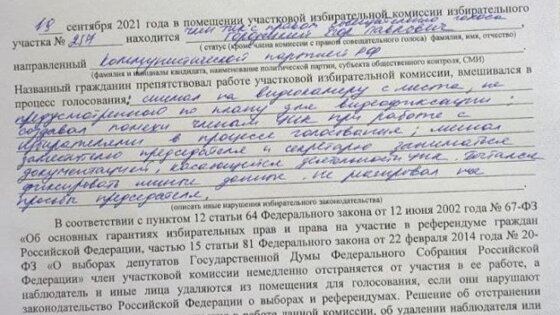 19 сентября 2021 года в помещении участковой избирательной комиссии избирательного
член тик с правом совещательного голоса
участка № 217 находится Павлович
( статус (кроме члена комиссии с правом совещательного голоса), фамилия, имя, отчество)
направленный Коммунистической партией РФ
(фамилия и инициалы кандидата, наименование политической партии, субъекта общественного контроля, СМИ)
Названный гражданин препятствовал работе участковой избирательной комиссии, вмешивался в
процесс голосования: снимал на видеокамеру с места, не
предусмотренного по плану для видеофиксации;
создавал помехи членам УИК при работе с
избирателями в процессе голосования; мешал
заместителю председателя и секретарю заниматься
документацией, касающейся деятельности УИК. Пытался
фиксировать личные данные. Не реагировал на
просьбы председателя.
(описать иные нарушения избирательного законодательства)
В соответствии с пунктом 12 статьи 64 Федерального закона от 12 июня 2002 года № 67-ФЗ
«Об основных гарантиях избирательных прав и права на участие в референдуме граждан
Российской Федерации, частью 15 статьи 81 Федерального закона от 22 февраля 2014 года № 20-
ФЗ «О выборах депутатов Государственной Думы Федерального Собрания Российской
Федерации» член участковой комиссии немедленно отстраняется от участия в ее работе, а
наблюдатель и иные лица удаляются из помещения для голосования, если они нарушают
законодательство Российской Федерации о выборах и референдумах. Решение об отстранении
работе данной комиссии, об удалении наблюдателя или